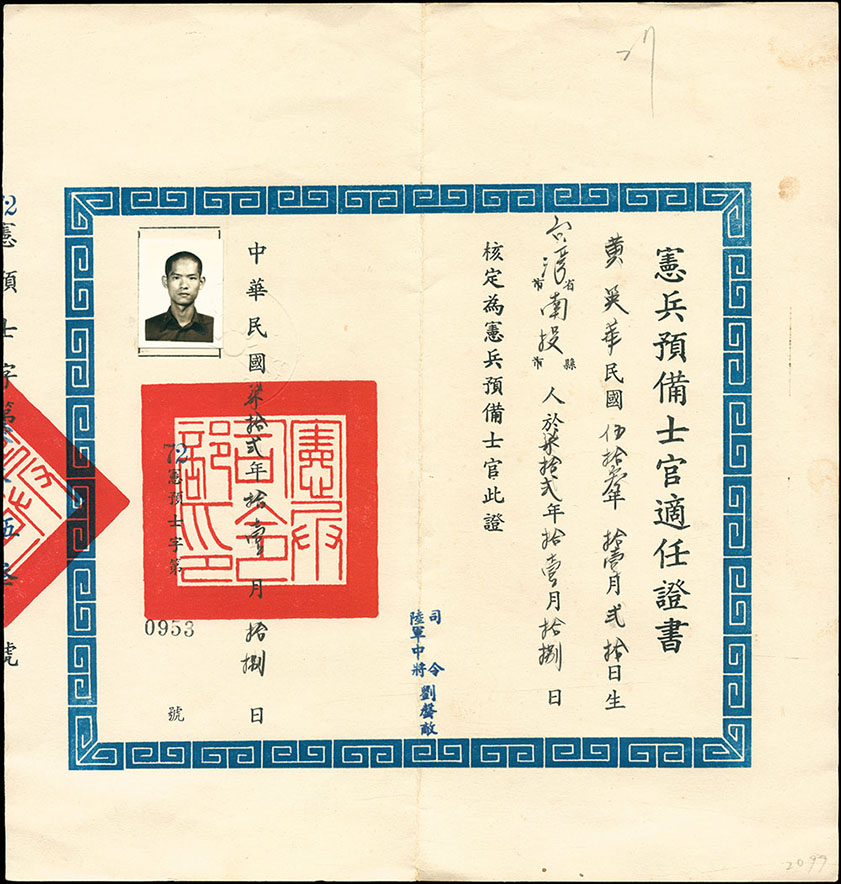 憲兵預備士官適任證書
黃華民國伍拾年拾壹月貳拾日生
台灣省市南投縣市人於柒拾弍年拾壹月拾捌日
核定為憲兵預備士官此證
司令
陸軍中將劉磬敵
憲兵司令部印
中華民國柒拾弍年拾壹月拾捌日
72憲預士字第0953號
72憲預士字第伍叁號